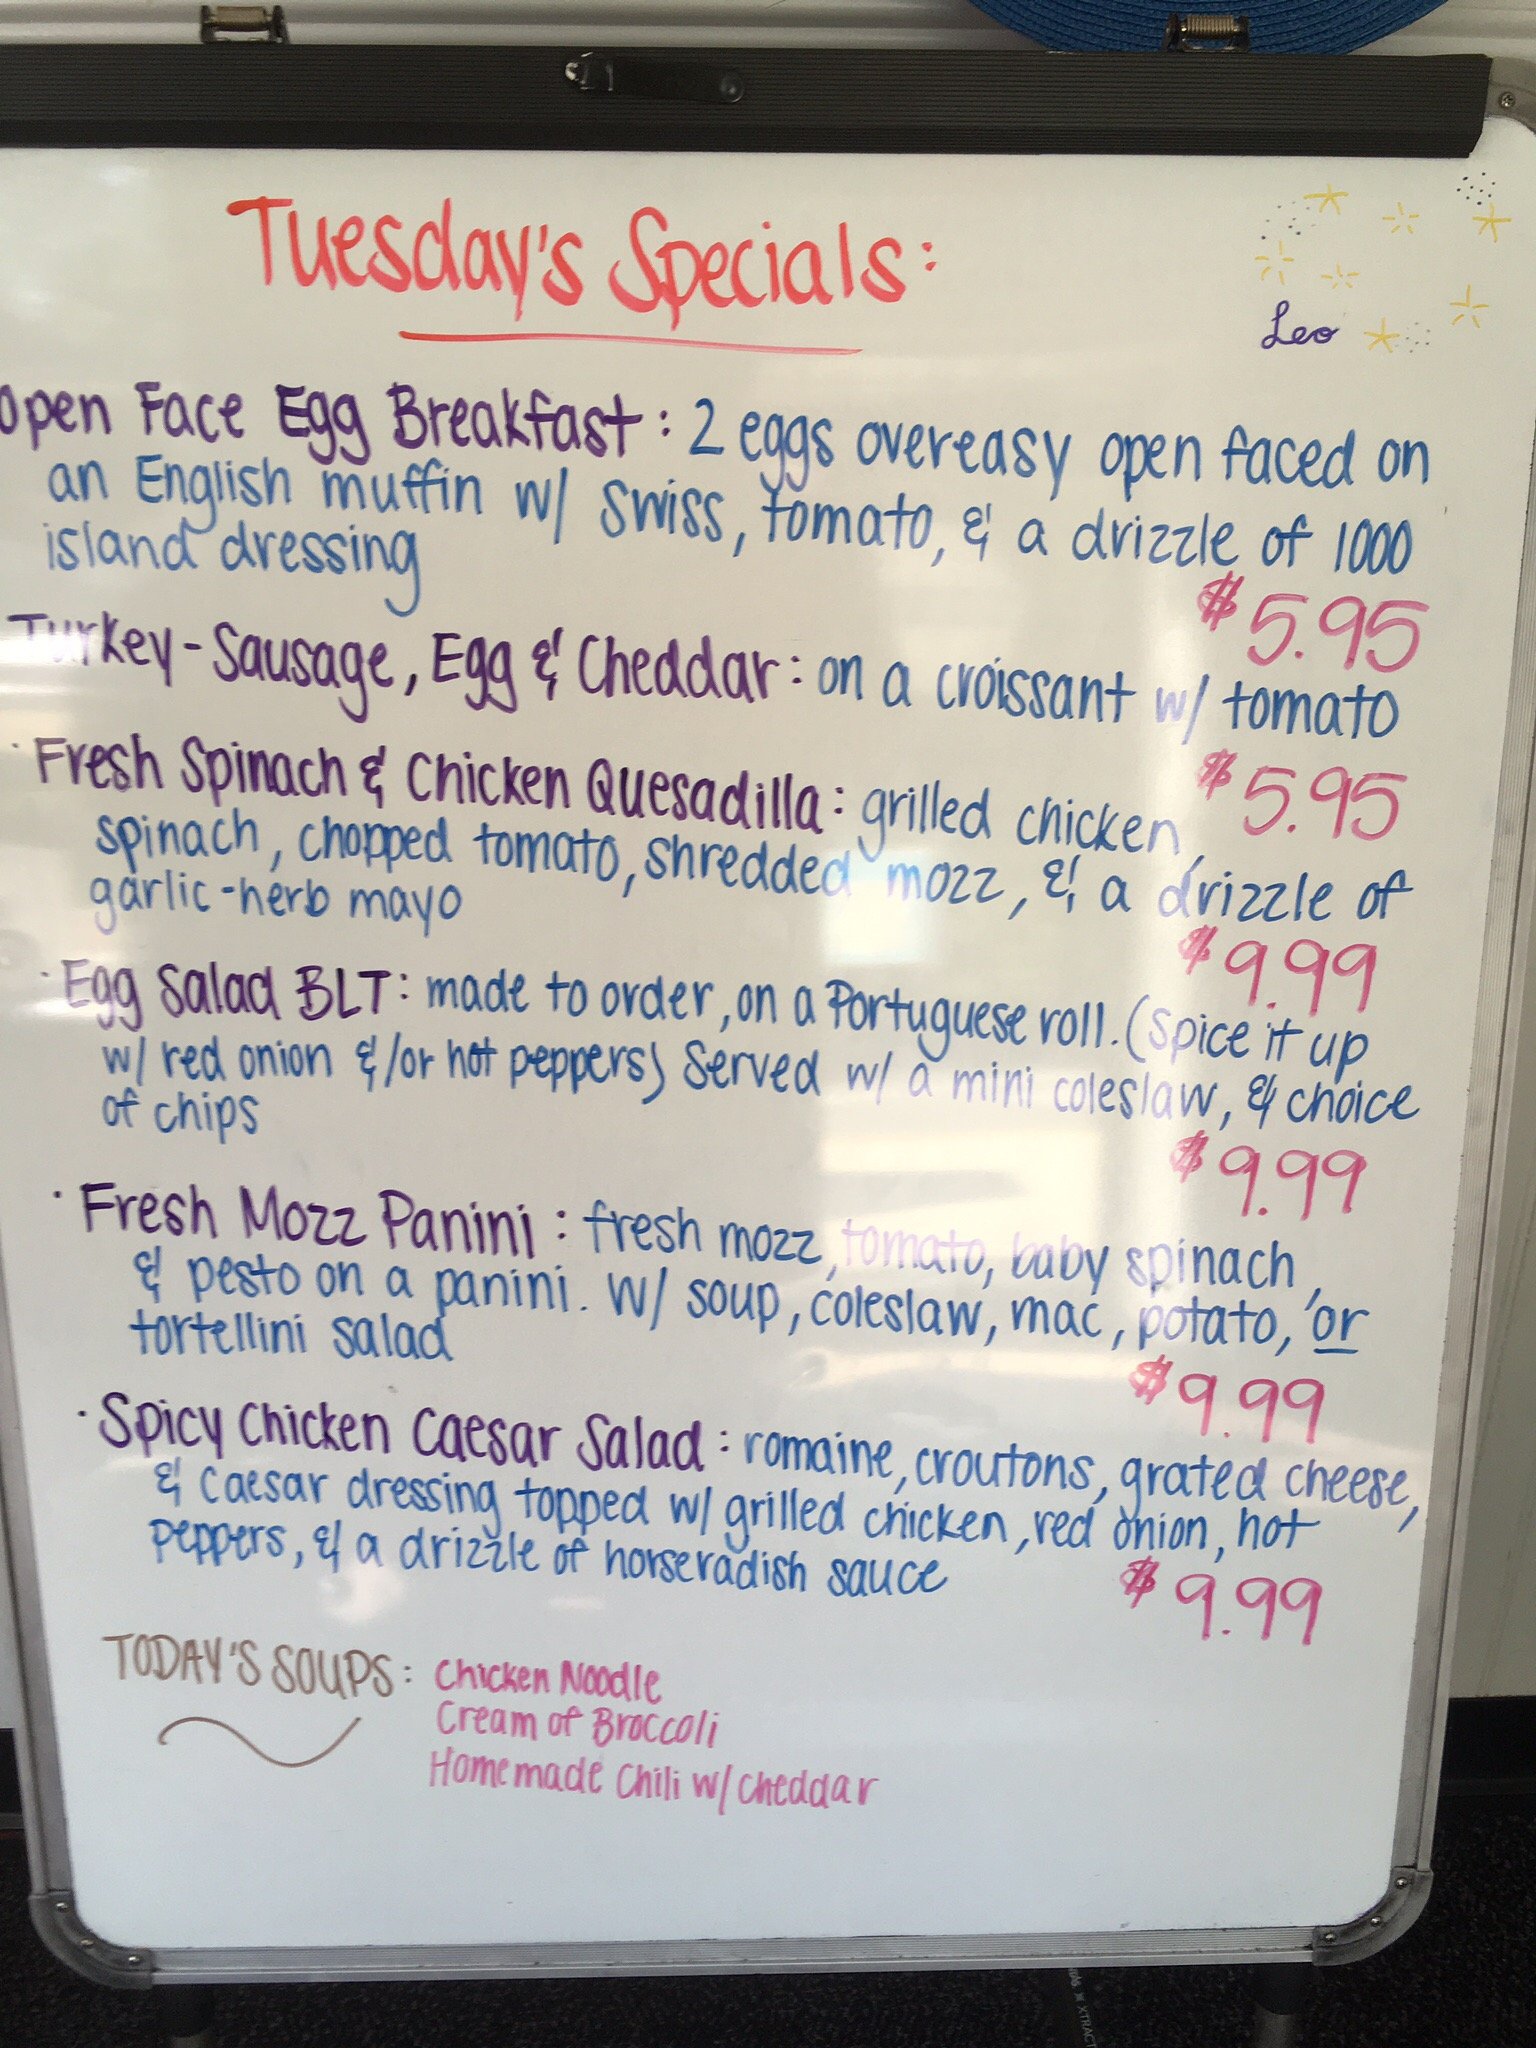 Tuesday's Specials:
Leo
Open Face Egg Breakfast: 2 eggs overeasy open faced on
an English muffin w/ Swiss, tomato, & a drizzle of 1000
island dressing
$5.95
Turkey-Sausage, Egg & Cheddar: on a croissant w/ tomato
$5.95
· Fresh Spinach & Chicken Quesadilla: grilled chicken,
spinach, chopped tomato, shredded mozz, & a drizzle of
garlic-herb mayo
$9.99
· Egg Salad BLT: made to order, on a Portuguese roll. (Spice it up
w/ red onion &/or hot peppers) Served w/ a mini coleslaw, & choice
of chips
$9.99
· Fresh Mozz Panini: fresh mozz, tomato, baby spinach,
& pesto on a panini. W/ soup, coleslaw, mac, potato, or
tortellini salad
$9.99
· Spicy Chicken Caesar Salad: romaine, croutons, grated cheese,
& Caesar dressing topped w/ grilled chicken, red onion, hot
peppers, & a drizzle of horseradish sauce
$9.99
TODAY'S SOUPS: Chicken Noodle
Cream of Broccoli
Homemade Chili w/ cheddar
XTRACT